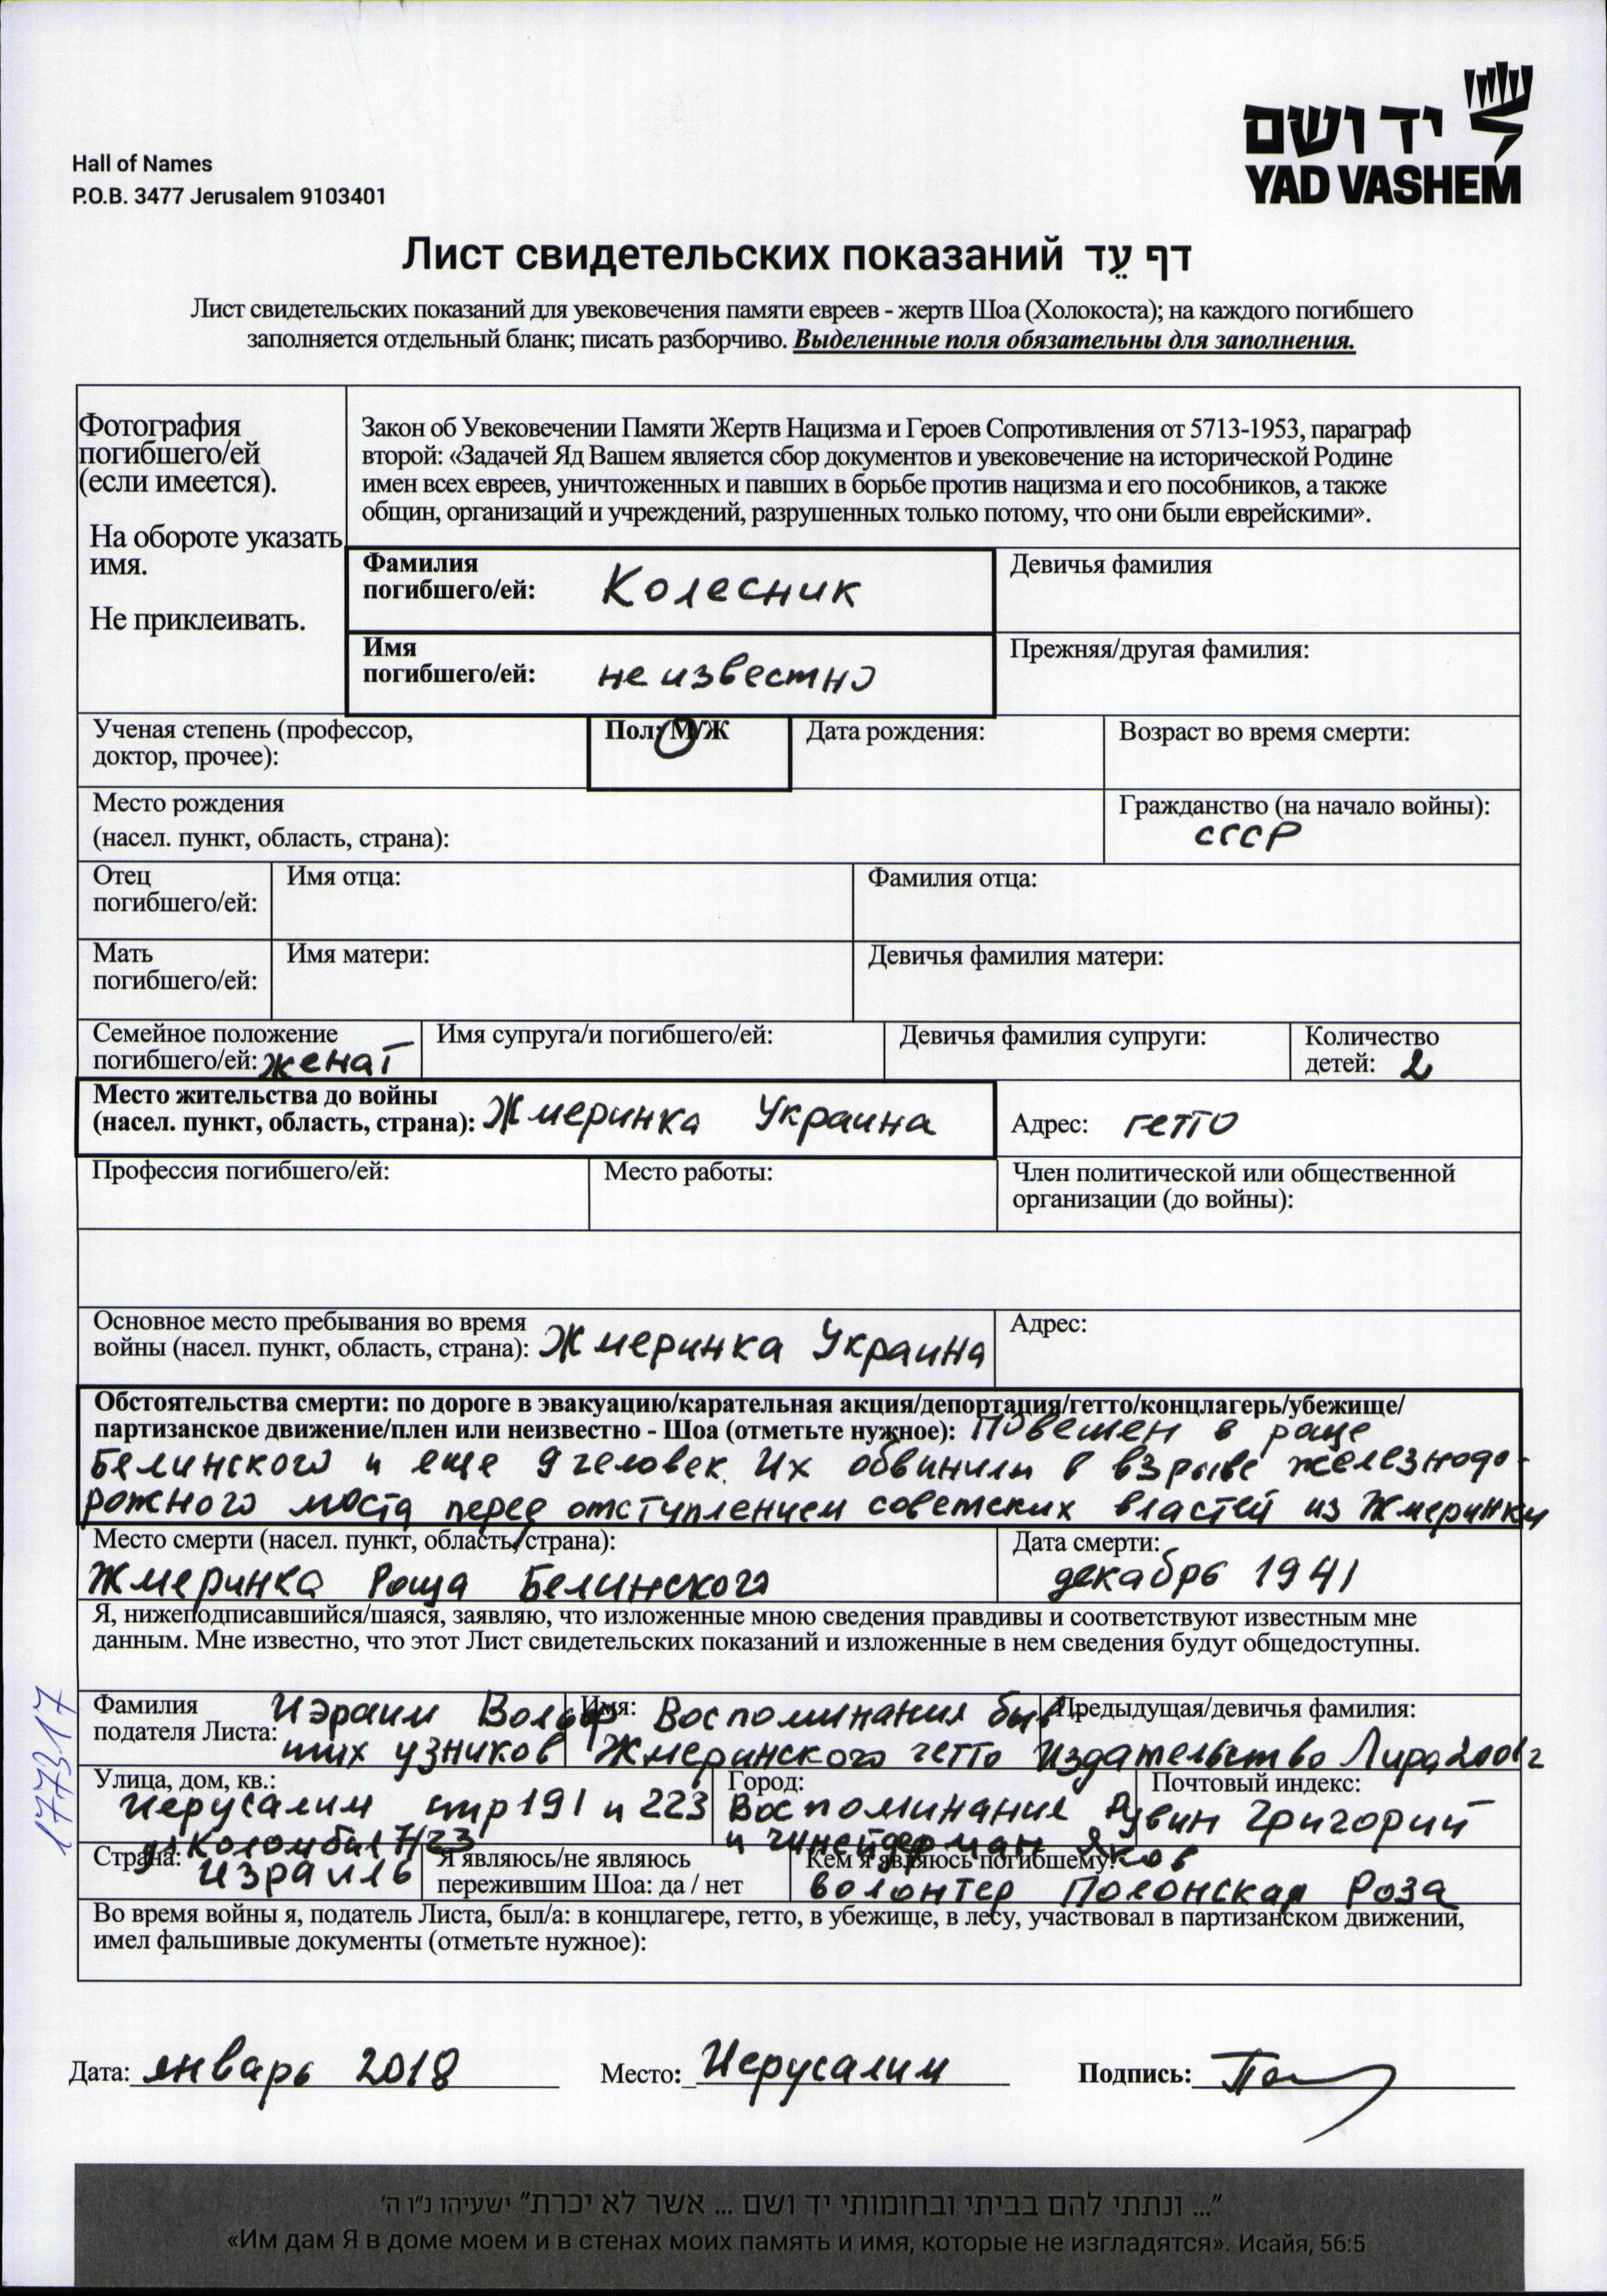 יד ושם
YAD VASHEM
Hall of Names
P.O.B. 3477 Jerusalem 9103401
Лист свидетельских показаний דף עֵד
Лист свидетельских показаний для увековечения памяти евреев - жертв Шоа (Холокоста); на каждого погибшего
заполняется отдельный бланк; писать разборчиво. Выделенные поля обязательны для заполнения.
Фотография
погибшего/ей
(если имеется).
На обороте указать
имя.
Не приклеивать.
Закон об Увековечении Памяти Жертв Нацизма и Героев Сопротивления от 5713-1953, параграф
второй: «Задачей Яд Вашем является сбор документов и увековечение на исторической Родине
имен всех евреев, уничтоженных и павших в борьбе против нацизма и его пособников, а также
общин, организаций и учреждений, разрушенных только потому, что они были еврейскими».
Фамилия
погибшего/ей: Колесник
Девичья фамилия
Имя
погибшего/ей: не известно
Прежняя/другая фамилия:
Ученая степень (профессор,
доктор, прочее):
Пол: М/Ж
Дата рождения:
Возраст во время смерти:
Место рождения
(насел. пункт, область, страна):
Гражданство (на начало войны):
СССР
Отец
погибшего/ей:
Имя отца:
Фамилия отца:
Мать
погибшего/ей:
Имя матери:
Девичья фамилия матери:
Семейное положение
погибшего/ей: женат
Имя супруга/и погибшего/ей:
Девичья фамилия супруги:
Количество
детей: 2
Место жительства до войны
(насел. пункт, область, страна): Жмеринка Украина
Адрес: гетто
Профессия погибшего/ей:
Место работы:
Член политической или общественной
организации (до войны):
Основное место пребывания во время
войны (насел. пункт, область, страна): Жмеринка Украина
Адрес:
Обстоятельства смерти: по дороге в эвакуацию/карательная акция/депортация/гетто/концлагерь/убежище/
партизанское движение/плен или неизвестно - Шоа (отметьте нужное): Повешен в роще
Белинского и еще 9 человек. Их обвинили в взрыве железнодо-
рожного моста перед отступлением советских властей из Жмеринки
Место смерти (насел. пункт, область, страна):
Жмеринка Роща Белинского
Дата смерти:
декабрь 1941
Я, нижеподписавшийся/шаяся, заявляю, что изложенные мною сведения правдивы и соответствуют известным мне
данным. Мне известно, что этот Лист свидетельских показаний и изложенные в нем сведения будут общедоступны.
177317
Фамилия
подателя Листа:
Имя:
Предыдущая/девичья фамилия:
Израим Вольф Воспоминания быв
ших узников Жмеринского гетто Издательство Лира 2001г
Улица, дом, кв.:
Иерусалим стр 191 и 223
ул Коломбия 7/23
Город:
Почтовый индекс:
Воспоминания Рувин Григорий
и Яков
Страна: Израиль
Я являюсь/не являюсь
пережившим Шоа: да / нет
Кем я являюсь погибшему:
волонтер Полонская Роза
Во время войны я, податель Листа, был/а: в концлагере, гетто, в убежище, в лесу, участвовал в партизанском движении,
имел фальшивые документы (отметьте нужное):
Дата: январь 2018
Место: Иерусалим
Подпись:
"... ונתתי להם בביתי ובחומותי יד ושם ... אשר לא יכרת" ישעיהו נ"ו ה'
«Им дам Я в доме моем и в стенах моих память и имя, которые не изгладятся». Исайя, 56:5